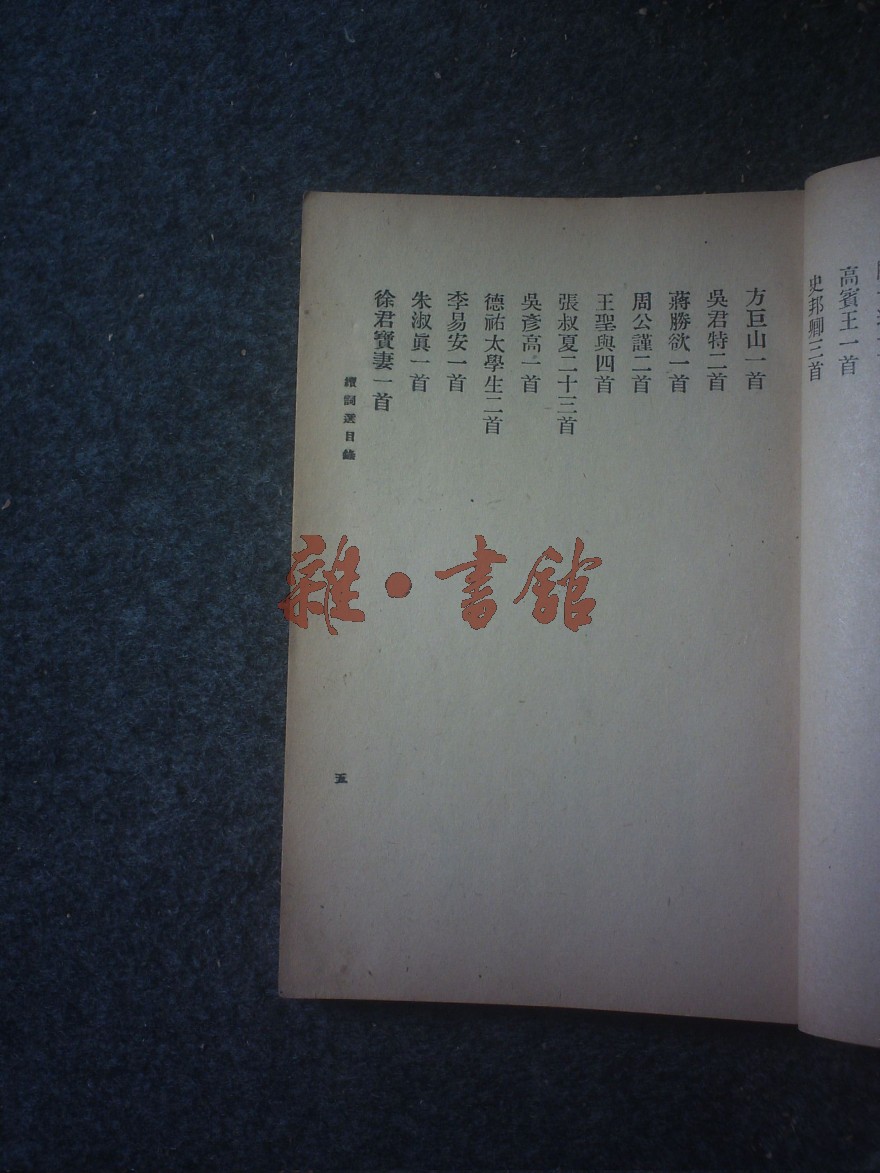 高賓王一首
史邦卿三首
方巨山一首
吳君特二首
蔣勝欲一首
周公謹二首
王聖與四首
張叔夏二十三首
吳彥高一首
德祐太學生二首
李易安一首
朱淑眞一首
徐君寶妻一首
續詞選目錄
五
雜·書館